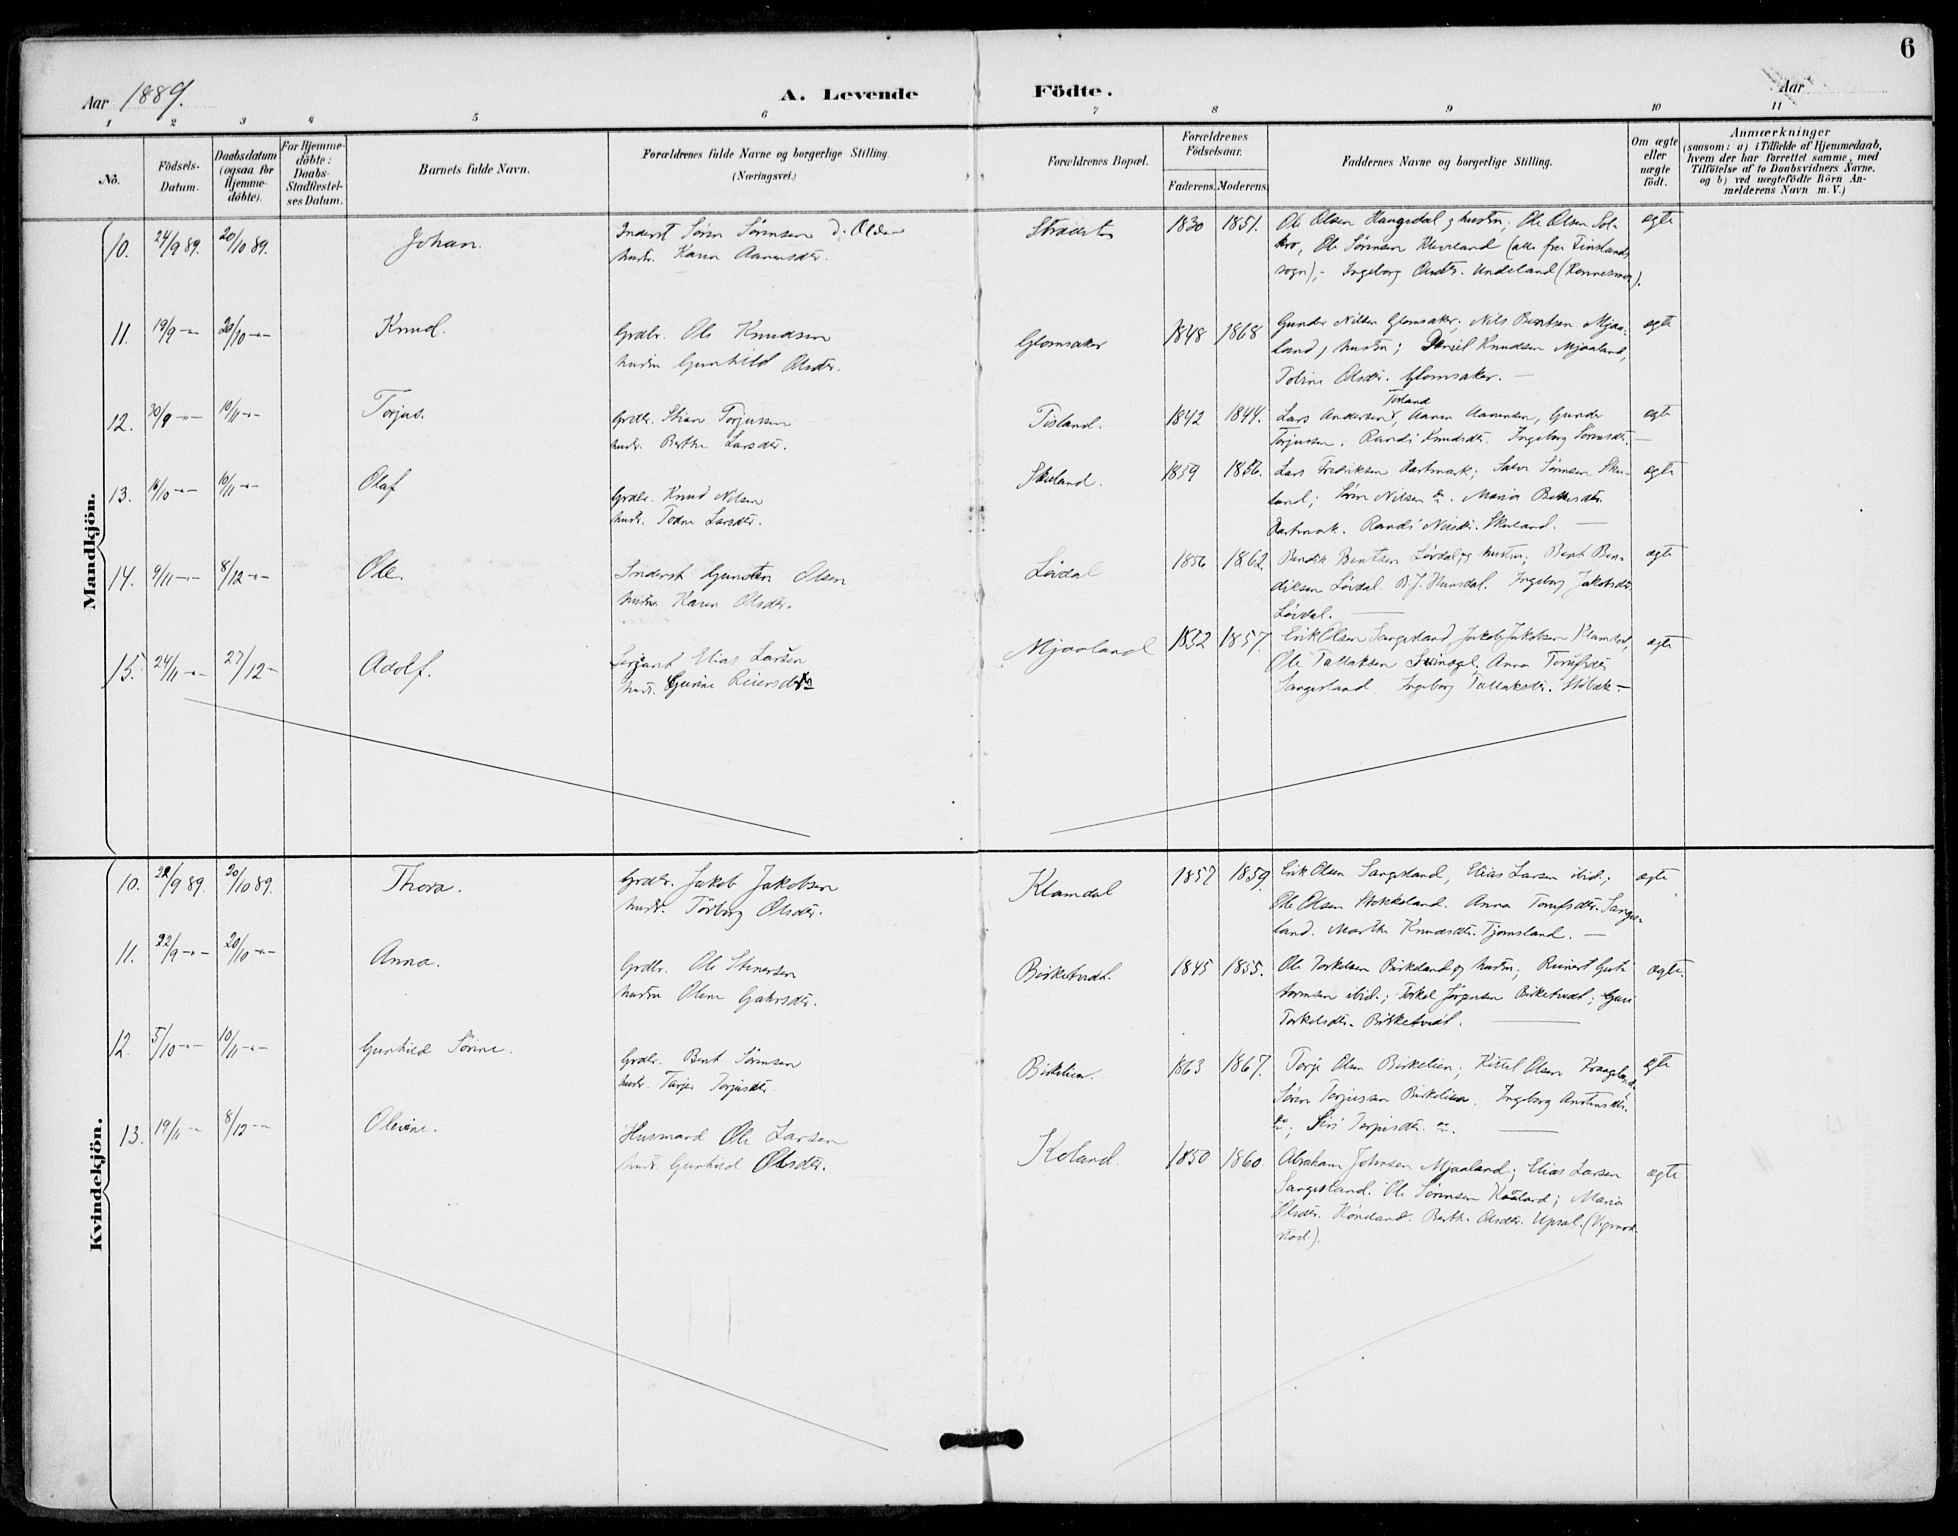 6
Aar 1889.
A. Levende Födte.
Aar
1 2 3 4 5 6 7 8 9 10 11
No.
Födsels-Datum.
Daabsdatum (ogsaa for Hjemme-döbte).
For Hjemme-döbte: Daabs-Stadfæstel-ses Datum.
Barnets fulde Navn.
Forældrenes fulde Navne og borgerlige Stilling.
(Næringsvei.)
Forældrenes Bopæl.
Forældrenes Födselsaar.
Faderens. Moderens.
Faddernes Navne og borgerlige Stilling.
Om ægte eller uægte födt.
Anmærkninger
(saasom: a) i Tilfælde af Hjemmedaab,
hvem der har forrettet samme, med
Tilföielse af to Daabsvidners Navne.
og b) ved uægtefödte Börn An-
melderens Navn m. V.)
Mandkjön.
10. 24/9 89. 20/10 89. Johan. Inderst Søren Sørensen
hustr. Karen Aanensdtr.
1830 1851. Ole Olsen Haugsdal og hustru; Ole Olsen Sol-
kro, Ole Sørensen Kleveland (alle fra Finslands
sogn); Ingeborg Olsdtr. Undeland ægte
11. 19/9 -"- 20/10 -"- Knud. Grdbr. Ole Knudsen
hustru Gunhild Olsdtr.
Glomsaker 1848 1868 Gunder Nilsen Glomsaker; Nils Bentsen Mjaa-
land, hustru; Daniel Knudsen Mjaaland,
Tobine Olsdtr. Glomsaker. — ægte
12. 30/9 -"- 10/11 -"- Torjus. Grdbr. Stian Torjussen
hustr. Berthe Larsdtr.
Tisland. 1842 1844. Lars Andersen Tisland, Aanen Aanensen, Gunder
Torjussen. Randi Knudsdtr. Ingeborg Sørensdtr. — ægte
13. 16/10 -"- 10/11 -"- Olaf Grdbr. Knud Nilsen
hustr. Todne Larsdtr.
Skuland. 1859 1856. Lars Fredriksen Hartmark; Salve Sørensen Sku-
land; Søren Nilsen do. Maria
Hartmark. Randi Nilsdtr. Skuland. — ægte
14. 9/11 -"- 8/12 -"- Ole. Inderst Gunsten Olsen
hustru Karen Olsdtr.
Løvdal 1856 1862. Bendik Bentsen Løvdal og hustru; Bent Ben-
diksen Løvdal. B. J. Hunsdal. Ingeborg Jakobsdtr.
Løvdal. — ægte
15. 24/11 -"- 27/12 - Adolf. Sersjant Elias Larsen
hustr. Gurine Reiersdtr
Mjaaland 1852 1857. Erik Olsen Sangesland, Jakob Jakobsen Klamdal,
Ole Tallaksen Anna Torufsdtr
Sangesland. Ingeborg Tallaksdtr. — ægte
Kvindekjön.
10. 22/9 89. 20/10 89. Thora. Grdbr. Jakob Jakobsen
hustr. Torborg Olsdtr.
Klamdal 1857 1859. Erik Olsen Sangesland, Elias Larsen ibid.;
Ole Olsen Stokkeland. Anna Torufsdtr. Sanges-
land. Marthe Knudsdtr. Tjomsland. — ægte
11. 22/9 -"- 20/10 -"- Anna. Grdbr. Ole Stenersen
hustru Olene
Birketvedt. 1845 1855. Ole Torkelsen Birkeland og hustru; Reinert Gut-
tormsen ibid.; Torkel Jørgensen Birketvedt; Guri
Torkelsdtr. Birketvedt. — ægte.
12. 5/10 -"- 10/11 -"- Gunhild Sørine. Grdbr. Bent Sørensen
hustr. Tarjer Torjusdtr.
Birkelien. 1863 1867. Torje Olsen Birkelien; Kittel Olsen Kraageland,
Søren Torjussen Birkelien. Ingeborg
do; Siri Torjusdtr. do. — ægte
13. 19/11 — 8/12 — Olevine. Husmand Ole Larsen
hustr. Gunhild Olsdtr.
Koland. 1850 1860. Abraham Johnsen Mjaaland; Elias Larsen
Sangesland. Ole Sørensen Kaaland; Maria
Olsdtr. Høneland. Berthe Olsdtr. Upsal. (Vigmo-
stad). ægte